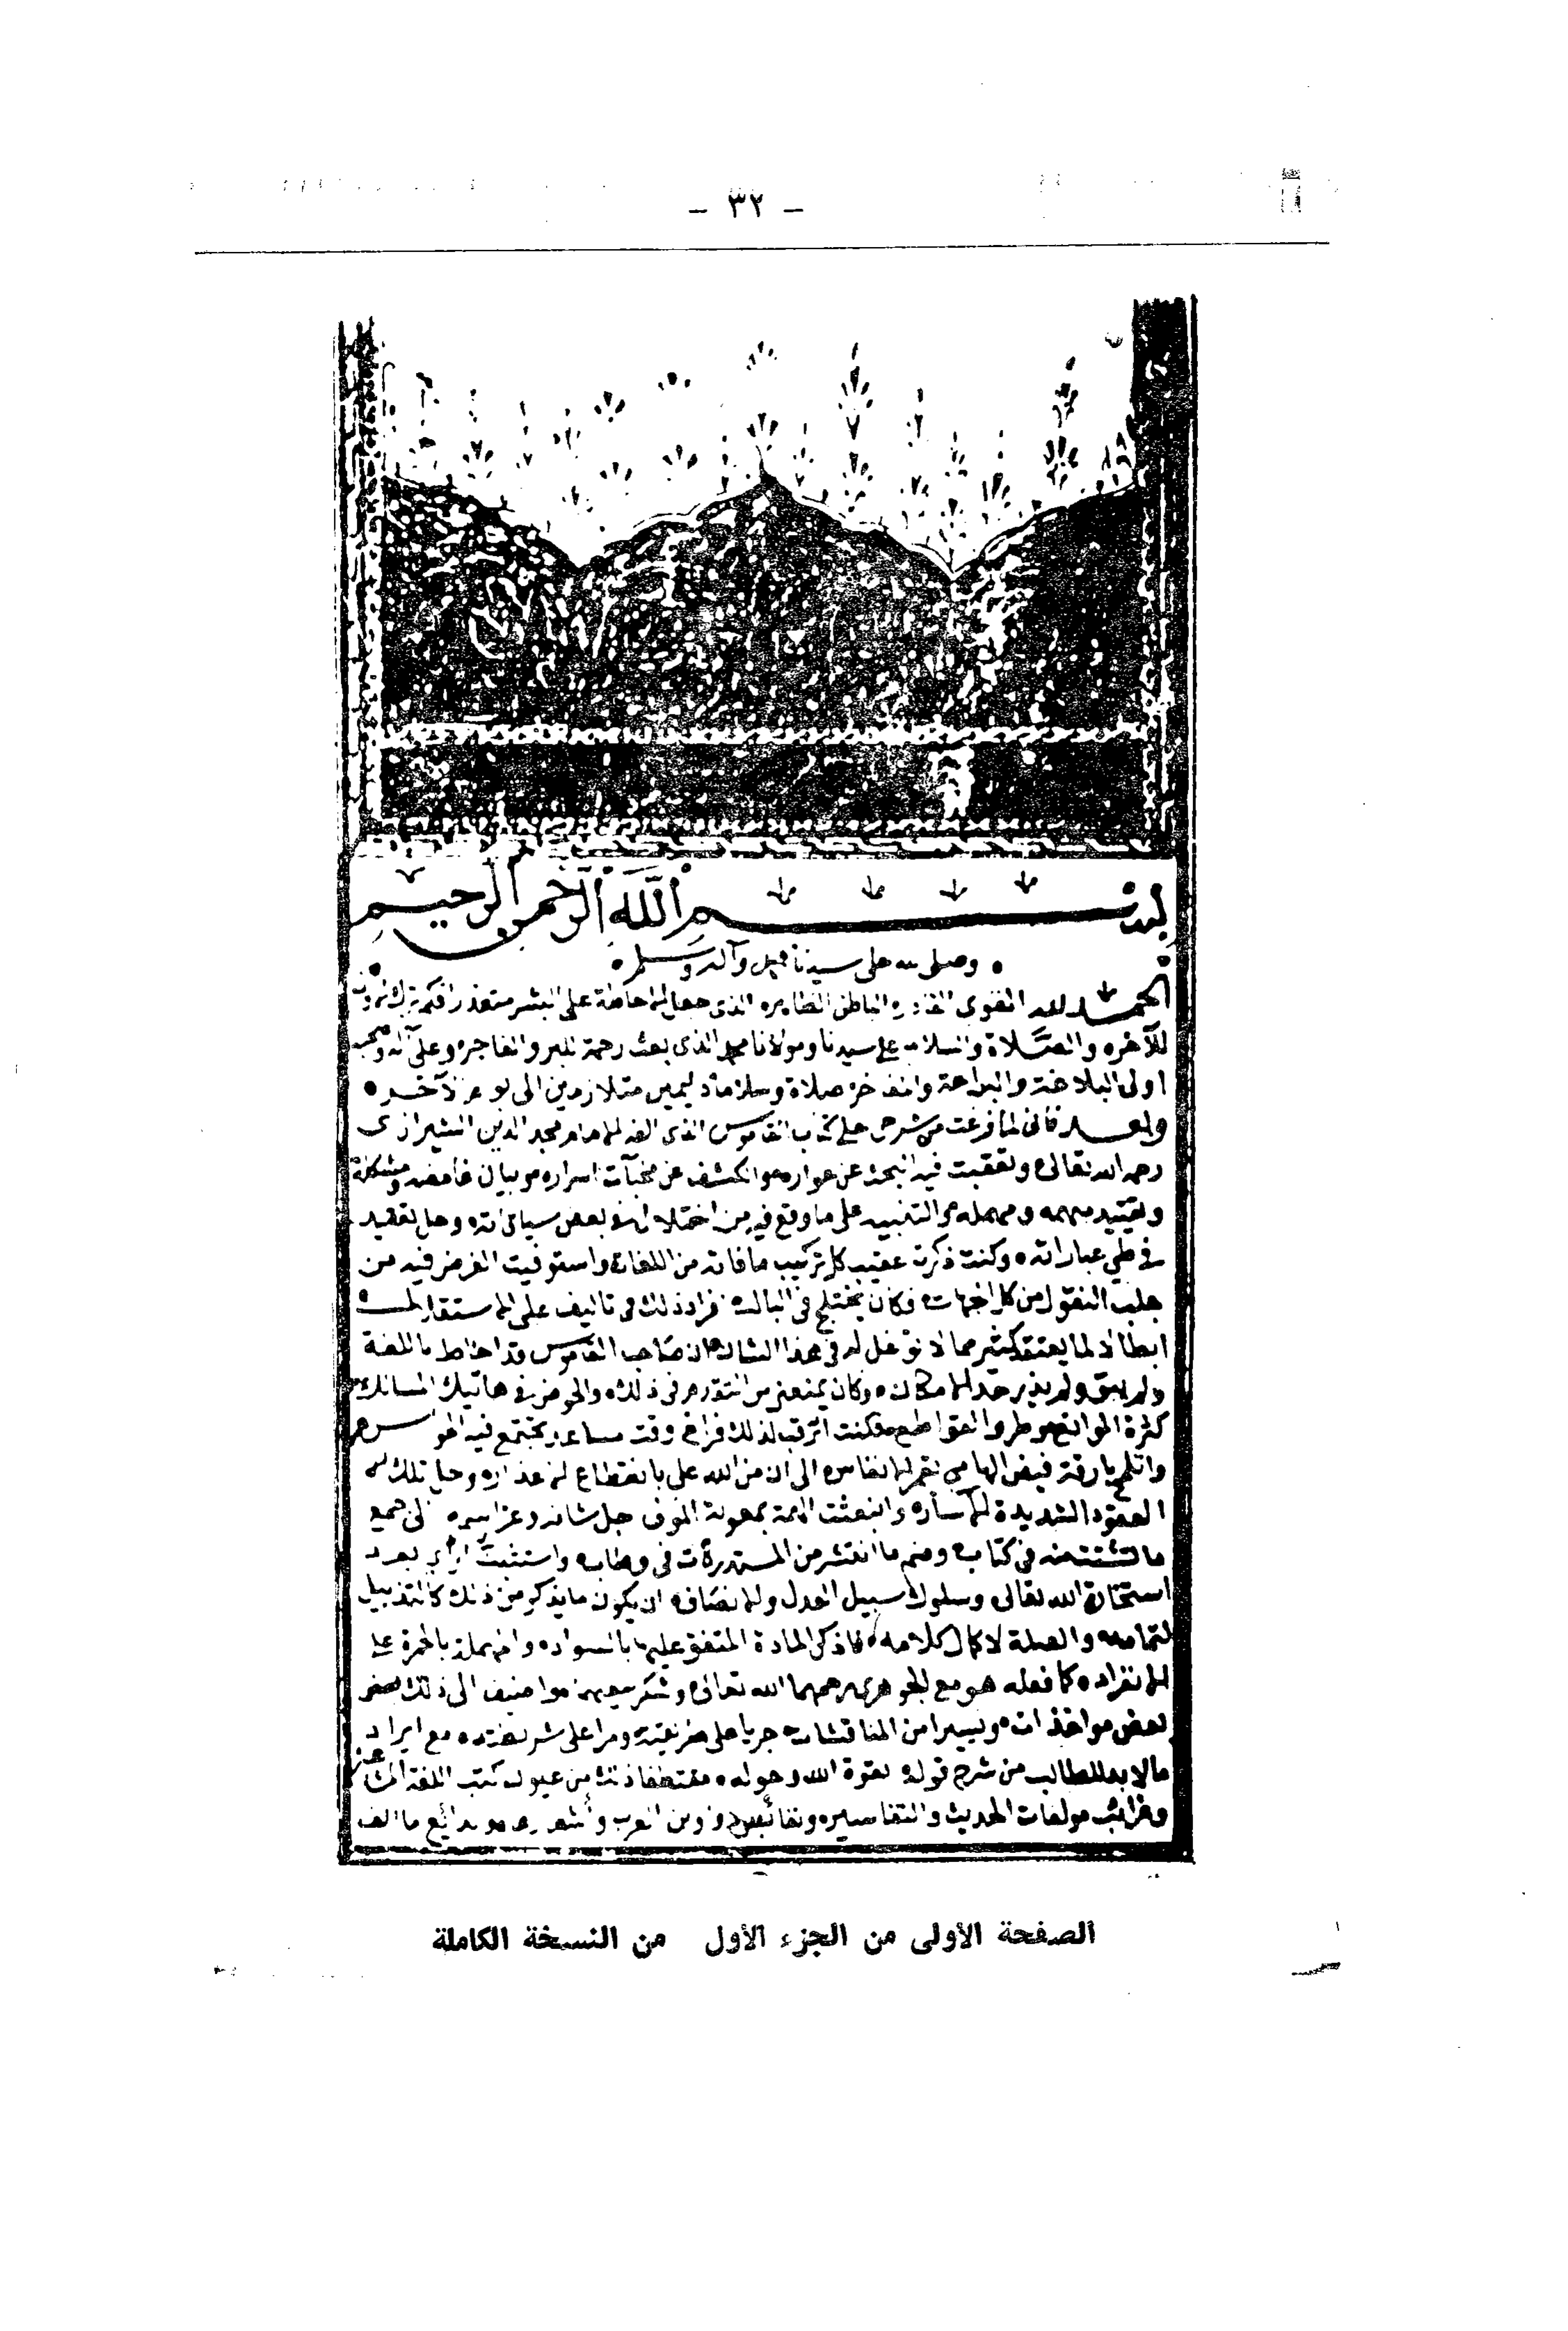 - ٣٢ -
بسم الله الرحمن الرحيم
وصلى الله على سيدنا محمد وآله وسلم
الحمد لله القوى القادر الباطن الظاهر الذى جعل الاحاطة على البشر متعذر افكم ترك
للآخره والصلاة والسلام على سيدنا ومولانا محمد الذى بعث رحمة للبر والفاجر وعلى آله وصحبه
اولى البلاغة والبراعة والمفاخر صلاة وسلاما دايمين متلازمين الى اليوم الآخر
وبعد فانى لما فرغت من شرحى على كتاب القاموس الذى الفه الامام مجد الدين الشيرازى
رحمه الله تعالى وتعقبت فيه البحث عن عواره والكشف عن مخبآت اسراره وبيان غامضه ومشكله
وتقييد مهمه ومهمله والتنبيه على ما وقع فيه من اختلال فى بعض سياقاته وحل تعقيد
فى طي عباراته وكنت ذكرت عقيب كل تركيب ما فاته من اللغات واستوفيت الغرض فيه من
جلب النقول من كل الجهات فكان يختلج فى البال افراد ذلك فى تاليف على الاستقلال
ابطالا لما يعتقد كثير مما لا توغل له فى هذا الشان ان صاحب القاموس قد احاط باللغة
ولم يبق ولم يذر حد الامكان وكان يمنعنى من التقدم فى ذلك والخوض فى هاتيك المسالك
كثرة الموانع وطروالقواطع وكنت اترقب لذلك فراغ وقت مساعد يجتمع فيه الحواس
والمح بارقة فيض الهامى تعم الانفاس الى ان من الله على بانقطاع الاعذار وحل تلك
العقود الشديدة الاسار وانبعثت الهمة بمعونة المولى جل شانه وعز اسمه الى جمع
ما تشتت منه فى كتاب وضم ما انتشر من المستدركات فى وطاب واستثبت الراى بعد
استخارة الله تعالى وسلوك سبيل العدل والانصاف ان يكون ما يذكر من ذلك كالتذييل
لتمامه والصلة لاكمال كلامه فاذكر المادة المتفق عليها بالسواد والمهملة بالحمرة على
الانفراد كما فعله هو مع الجوهرى رحمهما الله تعالى وشكر سعيهما واضيف الى ذلك بعض
بعض مواخذات ويسيرا من المناقشات جريا على طريقته ومرا على شريعته مع ايراد
ما لا بد للطالب من شرح قوله بقوة الله وحوله مقتطفا ذلك من عيون كتب اللغة
وغرائب مولفات الحديث والتفاسير ونفائس دواوين العرب وأشعارهم وبدائع ما الف
الصفحة الأولى من الجزء الأول من النسخة الكاملة